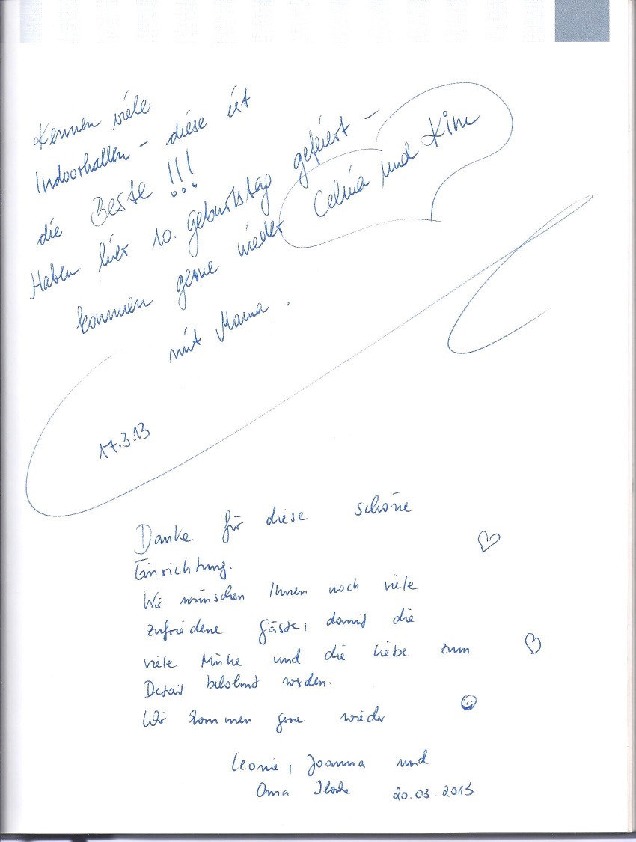 Kennen viele
Indoorhallen - diese ist
die Beste !!!
Haben hier 10. Geburtstag gefeiert -
kommen gerne wieder Celina und Kim
mit Mama.
17.3.13
Danke für diese schöne
Einrichtung.
Wir wünschen Ihnen noch viele
zufriedene Gäste, damit die
viele Mühe und die Liebe zum
Detail belohnt werden.
Wir kommen gerne wieder
Leonie, Joanna und
Oma 20.03.2013